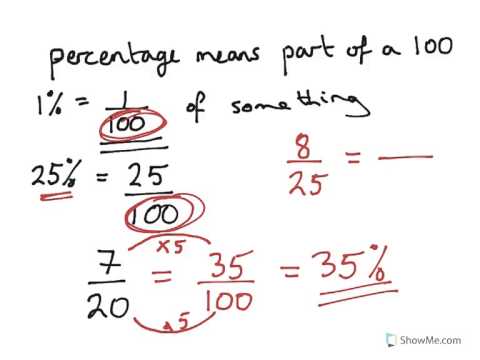 percentage means part of a 100
1% = 1/100 of something
25% = 25/100
8/25 = —
×5
7/20 = 35/100 = 35%
×5
ShowMe.com